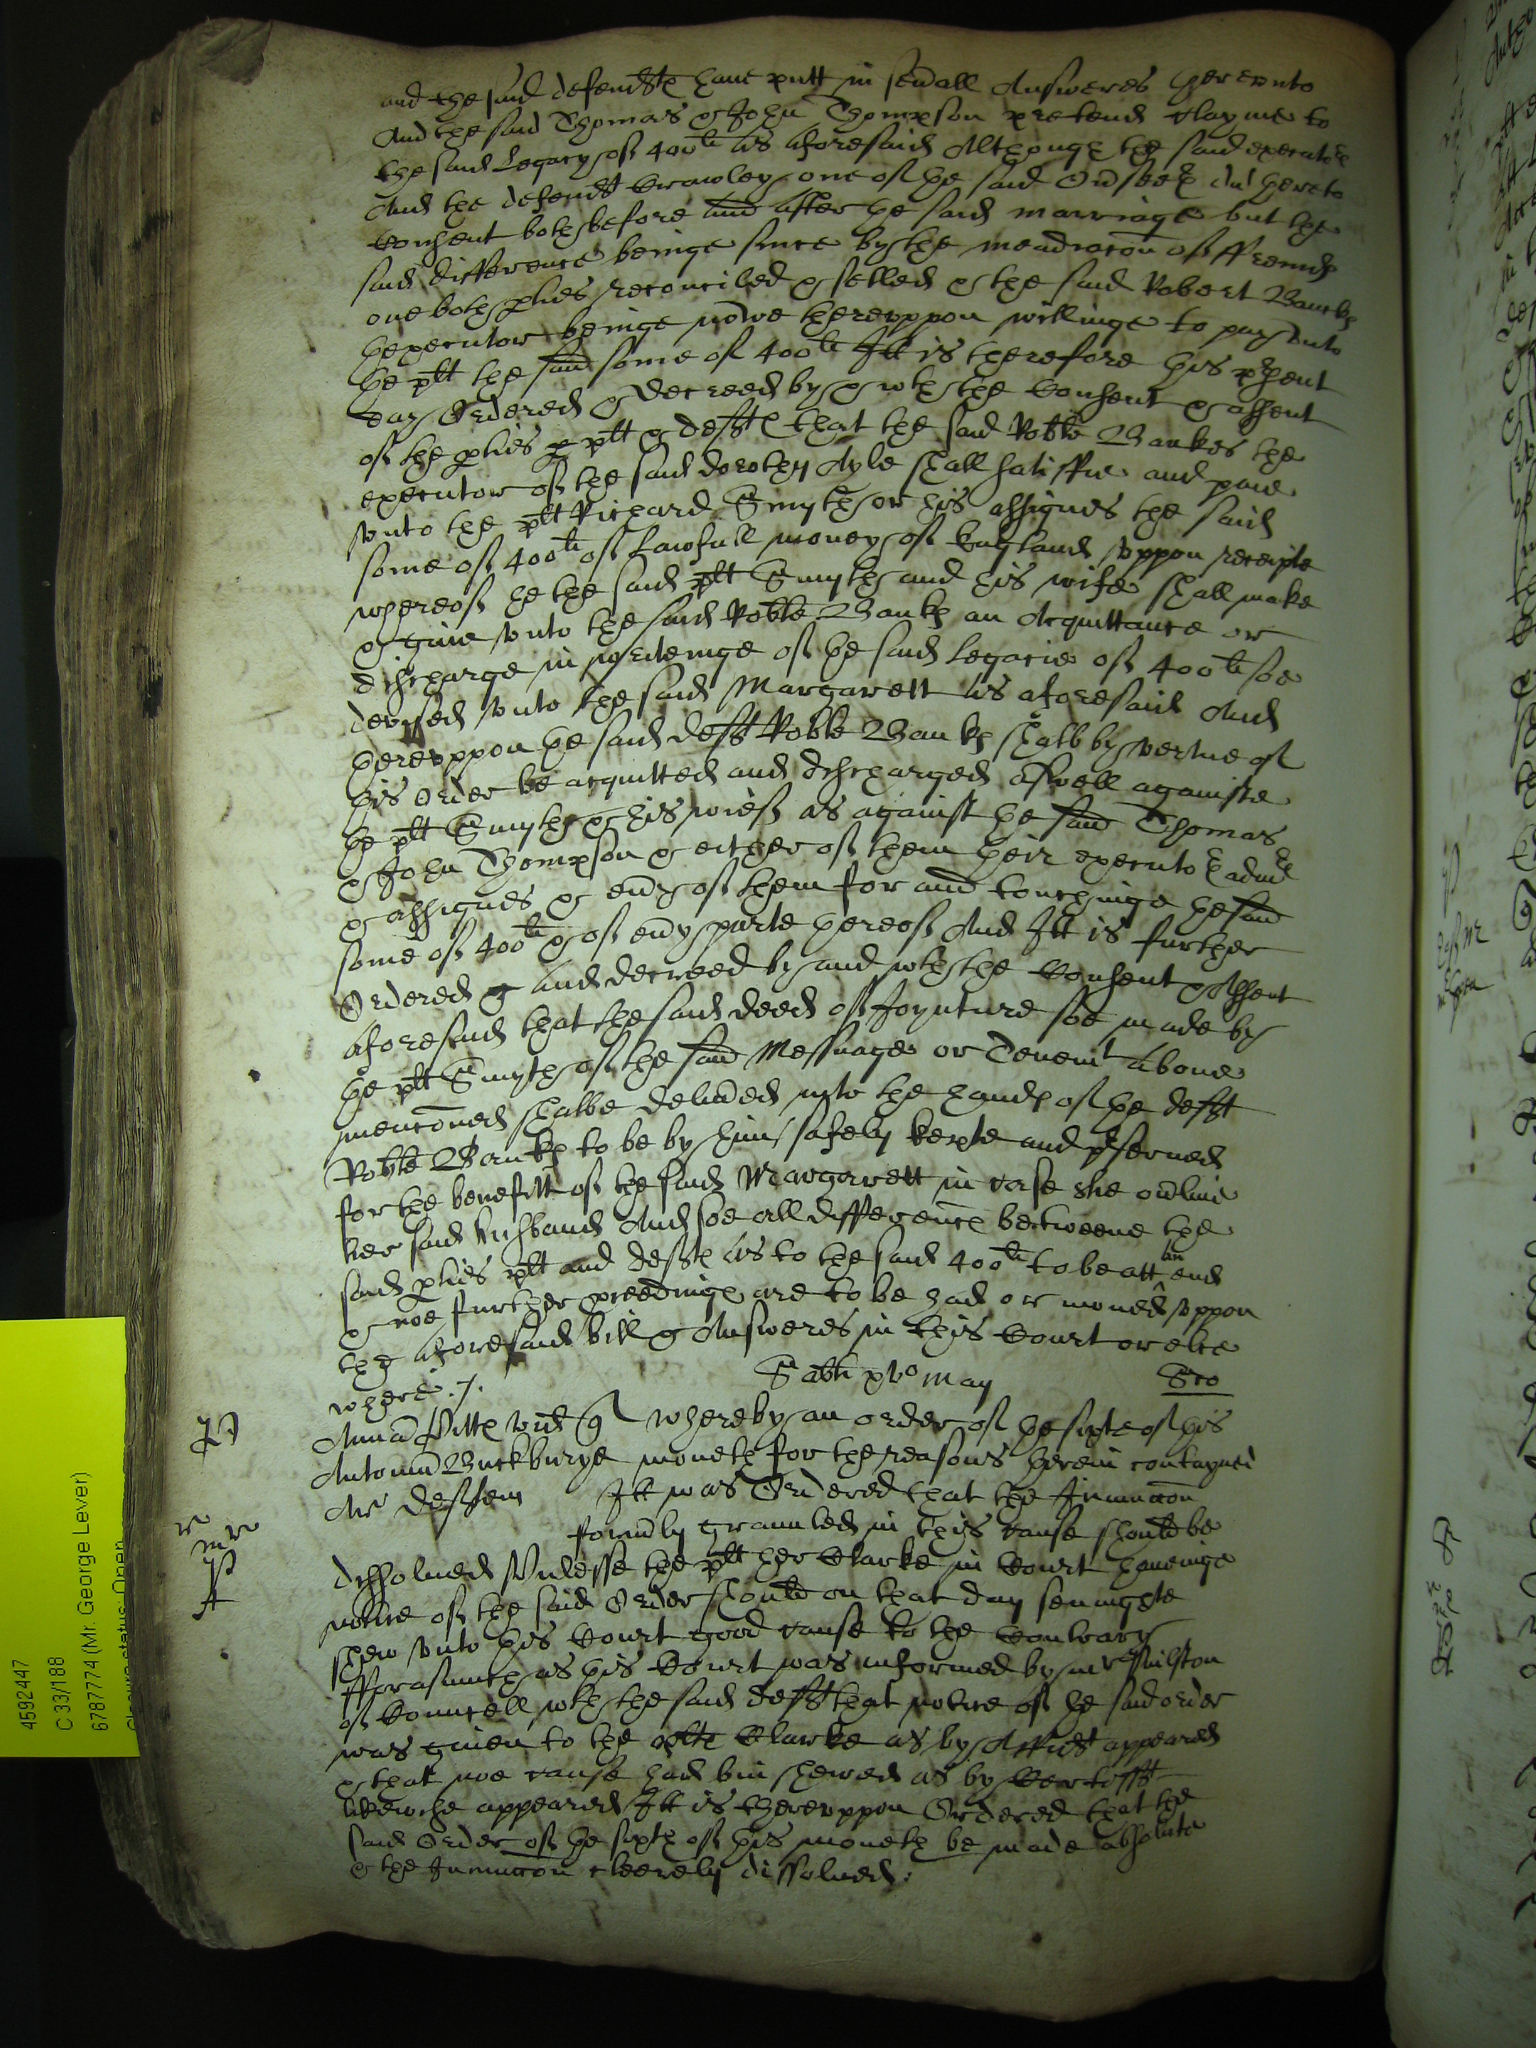 and the said defend<sup>te</sup>s haue putt in seũall Answeres herevnto
And the said Thomas & John Thompson pretend clayme to
the said Legacy of 400<sup>li</sup> as aforesaid Although the said executor
And the defend<sup>t</sup> Crawley one of the said Ouseers did hereto
consent both before and after the said marriage but the
said difference beinge since by the meadiacõn of ffreinds
one both pties reconciled & setled & the said Robert Bancks
thexecutor beinge nowe therevppon willinge to pay vnto
the plt the said some of 400<sup>li</sup> Itt is therefore this p<sup>r</sup>sent
day Ordered & decreed by & wth the Consent & assent
of the pties p plt & defts that the said Robte Banckes the
executor of the said dorothy Ayle shall satisffie and paie
vnto the plt Richard Smyth or his assignes the said
some of 400<sup>li</sup> of Lawfull money of England vppon receipte
whereof he the said plt Smyth and his wife shall make
& giue vnto the said Robte Bancks an Acquittance or
discharge in writeinge of the said Legacie of 400<sup>li</sup> soe
devised vnto the said Margarett as aforesaid And
herevppon the said deft Robte Bancks shalb by vertue of
this order be acquitted and discharged aswell againste
the plt Smyth & his wief as against the said Thomas
& John Thompson & either of them their executo<sup>rs</sup> adm<sup>rs</sup>
& assignes & eũy of them for and touchinge the said
some of 400<sup>li</sup> & of eũy parte thereof And Itt is further
Ordered & and decreed by and wth the Consent & Assent
aforesaid that the said deed of Joynture soe made by
the plt Smyth of the said Messuage or Tenem<sup>t</sup> aboue
mencõned shalbe deliũed into the hands of the deft
Robte Bancks to be by him safely kepte and p<sup>r</sup>serued
for the benefitt of the said Margarett in case she oũliue
her said husband And soe all differencs betweene the
said pties plt and defts as to the said 400<sup>li</sup> to be att an end
& noe further pceedings are to be had or moued vppon
the aforesaid bill & Answeres in this Court or else
where ./.
Sabti xv<sup>o</sup> May
Sco
Anna Pitts vid q whereby an order of the sixte of this
Antoniũ Buckbirge moneth for the reasons therein contayned
Ar deften Itt was Ordered that the Iniunccõn
form̃ly graunted in this cause should be
dissolued Vnlesse the plt her Clarke in Court haueinge
notice of the said Order should on that day sennighte
shew vnto this Court good cause to the Contrary
fforasmuch as this Court was informed by m<sup>r</sup>
of Councell wth the said deft that notice of the said order
was giuen to the plts Clarke as by Affid<sup>t</sup> appeared
& that noe cause had bin shewed as by Certifft
likewise appeared Itt is therevppon Ordered that the
said Order of the sixth of this moneth be made absolute
& the Iniunccõn cleerely dissolued:
4592447
C 33/188
6787774 (Mr. George Lever)
Closure status: Open